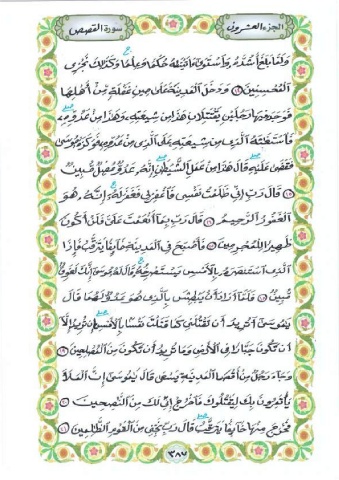 الجزء العشرون
سورة القصص
وَلَمَّا بَلَغَ أَشُدَّهُ وَاسْتَوَىٰ آتَيْنَاهُ حُكْمًا وَعِلْمًا وَكَذَٰلِكَ نَجْزِي
الْمُحْسِنِينَ ١٤ وَدَخَلَ الْمَدِينَةَ عَلَىٰ حِينِ غَفْلَةٍ مِنْ أَهْلِهَا
فَوَجَدَ فِيهَا رَجُلَيْنِ يَقْتَتِلَانِ هَٰذَا مِنْ شِيعَتِهِ وَهَٰذَا مِنْ عَدُوِّهِ
فَاسْتَغَاثَهُ الَّذِي مِنْ شِيعَتِهِ عَلَى الَّذِي مِنْ عَدُوِّهِ فَوَكَزَهُ مُوسَىٰ
فَقَضَىٰ عَلَيْهِ قَالَ هَٰذَا مِنْ عَمَلِ الشَّيْطَانِ إِنَّهُ عَدُوٌّ مُضِلٌّ مُبِينٌ
١٥ قَالَ رَبِّ إِنِّي ظَلَمْتُ نَفْسِي فَاغْفِرْ لِي فَغَفَرَ لَهُ إِنَّهُ هُوَ
الْغَفُورُ الرَّحِيمُ ١٦ قَالَ رَبِّ بِمَا أَنْعَمْتَ عَلَيَّ فَلَنْ أَكُونَ
ظَهِيرًا لِلْمُجْرِمِينَ ١٧ فَأَصْبَحَ فِي الْمَدِينَةِ خَائِفًا يَتَرَقَّبُ فَإِذَا
الَّذِي اسْتَنْصَرَهُ بِالْأَمْسِ يَسْتَصْرِخُهُ قَالَ لَهُ مُوسَىٰ إِنَّكَ لَغَوِيٌّ
مُبِينٌ ١٨ فَلَمَّا أَنْ أَرَادَ أَنْ يَبْطِشَ بِالَّذِي هُوَ عَدُوٌّ لَهُمَا قَالَ
يَا مُوسَىٰ أَتُرِيدُ أَنْ تَقْتُلَنِي كَمَا قَتَلْتَ نَفْسًا بِالْأَمْسِ إِنْ تُرِيدُ إِلَّا
أَنْ تَكُونَ جَبَّارًا فِي الْأَرْضِ وَمَا تُرِيدُ أَنْ تَكُونَ مِنَ الْمُصْلِحِينَ ١٩
وَجَاءَ رَجُلٌ مِنْ أَقْصَى الْمَدِينَةِ يَسْعَىٰ قَالَ يَا مُوسَىٰ إِنَّ الْمَلَأَ
يَأْتَمِرُونَ بِكَ لِيَقْتُلُوكَ فَاخْرُجْ إِنِّي لَكَ مِنَ النَّاصِحِينَ ٢٠
فَخَرَجَ مِنْهَا خَائِفًا يَتَرَقَّبُ قَالَ رَبِّ نَجِّنِي مِنَ الْقَوْمِ الظَّالِمِينَ ٢١
٣٨٧